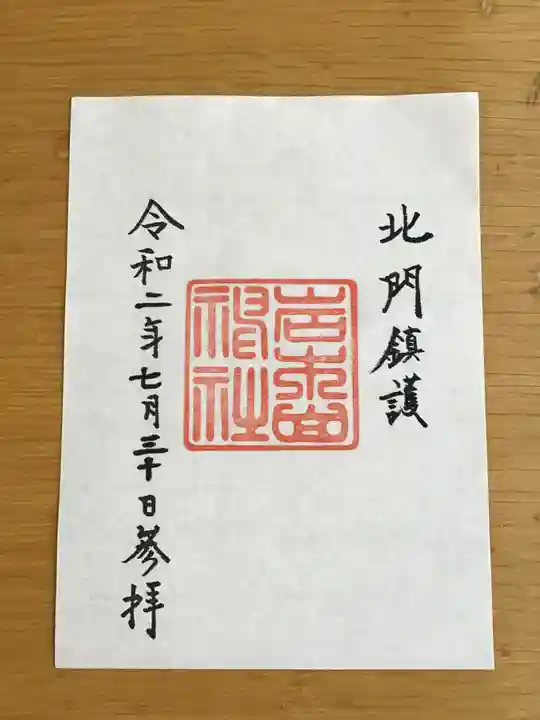 北門鎮護
岩木山
神社
令和二年七月三十日参拝